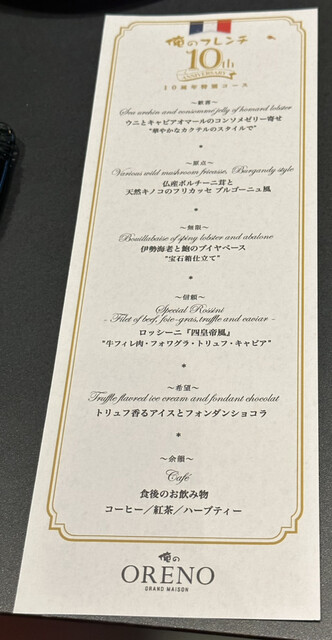 俺のフレンチ
10th
ANNIVERSARY
10周年特別コース
Sea urchin and consommé jelly of homard lobster
ウニとキャビアオマールのコンソメゼリー寄せ
"華やかなカクテルのスタイルで"
*
～原点～
Various wild mushroom fricassee, Burgundy style
仏産ポルチーニ茸と
天然キノコのフリカッセ ブルゴーニュ風
*
～無限～
Bouillabaisse of spiny lobster and abalone
伊勢海老と鮑のブイヤベース
"宝石箱仕立て"
*
～信頼～
Special Rossini
- Filet of beef, foie-gras, truffle and caviar -
ロッシーニ「四皇帝風」
"牛フィレ肉・フォワグラ・トリュフ・キャビア"
*
～希望～
Truffle flavored ice cream and fondant chocolat
トリュフ香るアイスとフォンダンショコラ
*
～余韻～
Café
食後のお飲み物
コーヒー／紅茶／ハーブティー
俺の
ORENO
GRAND MAISON